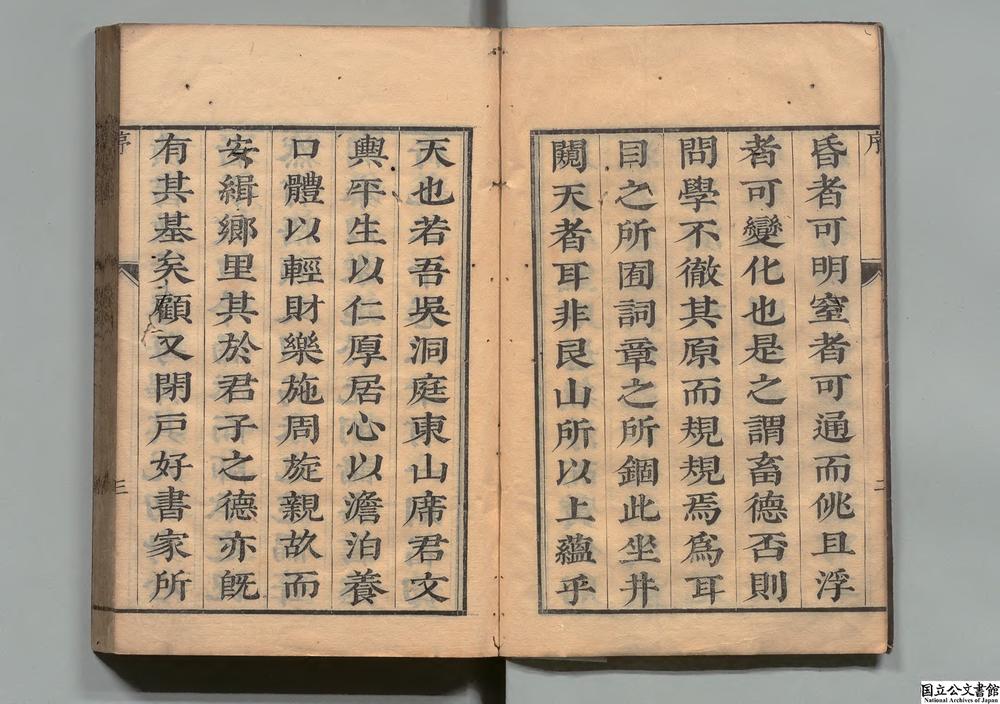 序
昏者可明窒者可通而佻且浮
者可變化也是之謂畜德否則
問學不徹其原而規規焉為耳
目之所囿詞章之所錮此坐井
闚天者耳非艮山所以上蘊乎
二
天也若吾吳洞庭東山席君文
輿平生以仁厚居心以澹泊養
口體以輕財樂施周旋親故而
安緝鄉里其於君子之德亦旣
有其基矣顧又閉戶好書家所
序
三
国立公文書館
National Archives of Japan